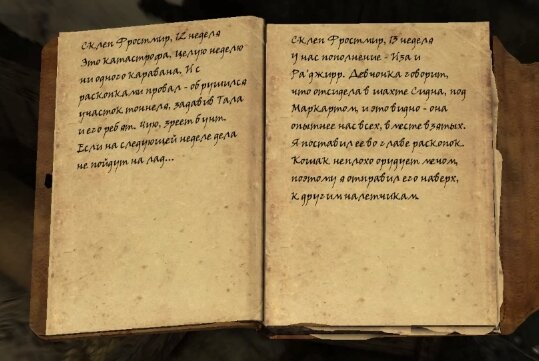 Склеп Фростмир, 12 неделя
Это катастрофа, целую неделю
ни одного каравана. И с
раскопками провал - обрушился
участок тоннеля, задавив Тала
и его ребят. Чую, зреет бунт.
Если на следующей неделе дела
не пойдут на лад...
Склеп Фростмир, 13 неделя
У нас пополнение - Иза и
Ра'джирр. Девчонка говорит,
что отсидела в шахте Сидна, под
Маркартом, и это видно - она
опытнее нас всех, вместе взятых.
Я поставил ее во главе раскопок.
Кошак неплохо орудует мечом,
поэтому я отправил его наверх,
к другим налетчикам.